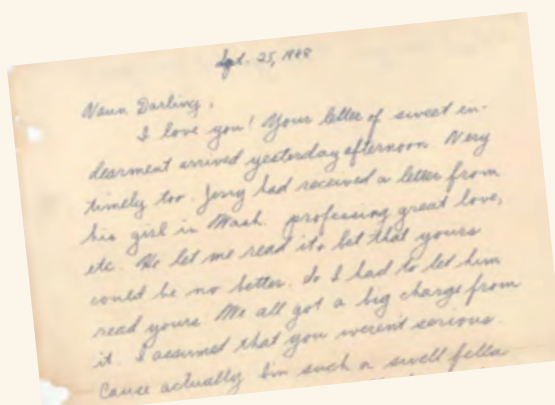 Sept. 25, 1948
Darling,
I love you! Your letter of sweet en-
dearment arrived yesterday afternoon. Very
timely too. Jerry had received a letter from
his girl in Wash. professing great love,
etc. He let me read it & bet that yours
could be no better. So I had to let him
read yours. We all got a big charge from
it. I assumed that you weren't serious.
Cause actually I'm such a swell fella